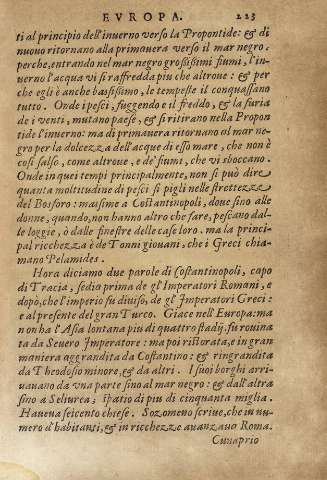 EVROPA. 223
ti al principio dell'inuerno verso la Propontide: & di
nuouo ritornano alla primauera verso il mar negro.
perche, entrando nel mar negro grossissimi fiumi, l'in
uerno l'acqua vi si raffredda piu che altroue: & per
che egli è anche bassissimo, le tempeste il conquassano
tutto. Onde i pesci, fuggendo e il freddo, & la furia
de i venti, mutano paese, & si ritirano nella Propon
tide l'inuerno: ma di primauera ritornano al mar ne
gro per la dolcezza dell'acque di esso mare, che non è
cosi salso, come altroue, e de' fiumi, che vi sboccano.
Onde in quei tempi principalmente, non si può dire
quanta moltitudine di pesci si pigli nelle strettezze
del Bosforo: massime a Costantinopoli, doue sino alle
donne, quando, non hanno altro che fare, pescano dal-
le loggie, ò dalle finestre delle case loro. ma la princi-
pal ricchezza è de Tonni giouani, che i Greci chia-
mano Pelamides.
Hora diciamo due parole di Costantinopoli, capo
di Tracia, sedia prima de gl'Imperatori Romani, e
dopò, che l'imperio fu diuiso, de gl'Imperatori Greci:
e al presente del gran Turco. Giace nell'Europa: ma
non ha l'Asia lontana piu di quattro stadij. fu rouina
ta da Seuero Imperatore: ma poi ristorata, e in gran
maniera aggrandita da Costantino: & ringrandita
da Theodosio minore, & da altri. I suoi borghi arri-
uauano da vna parte sino al mar negro: & dall'altra
sino a Seliurea; spatio di piu di cinquanta miglia.
Haueua seicento chiese. Sozomeno scriue, che in nu-
mero d'habitanti, & in ricchezze auanzaua Roma.
Cunaprio